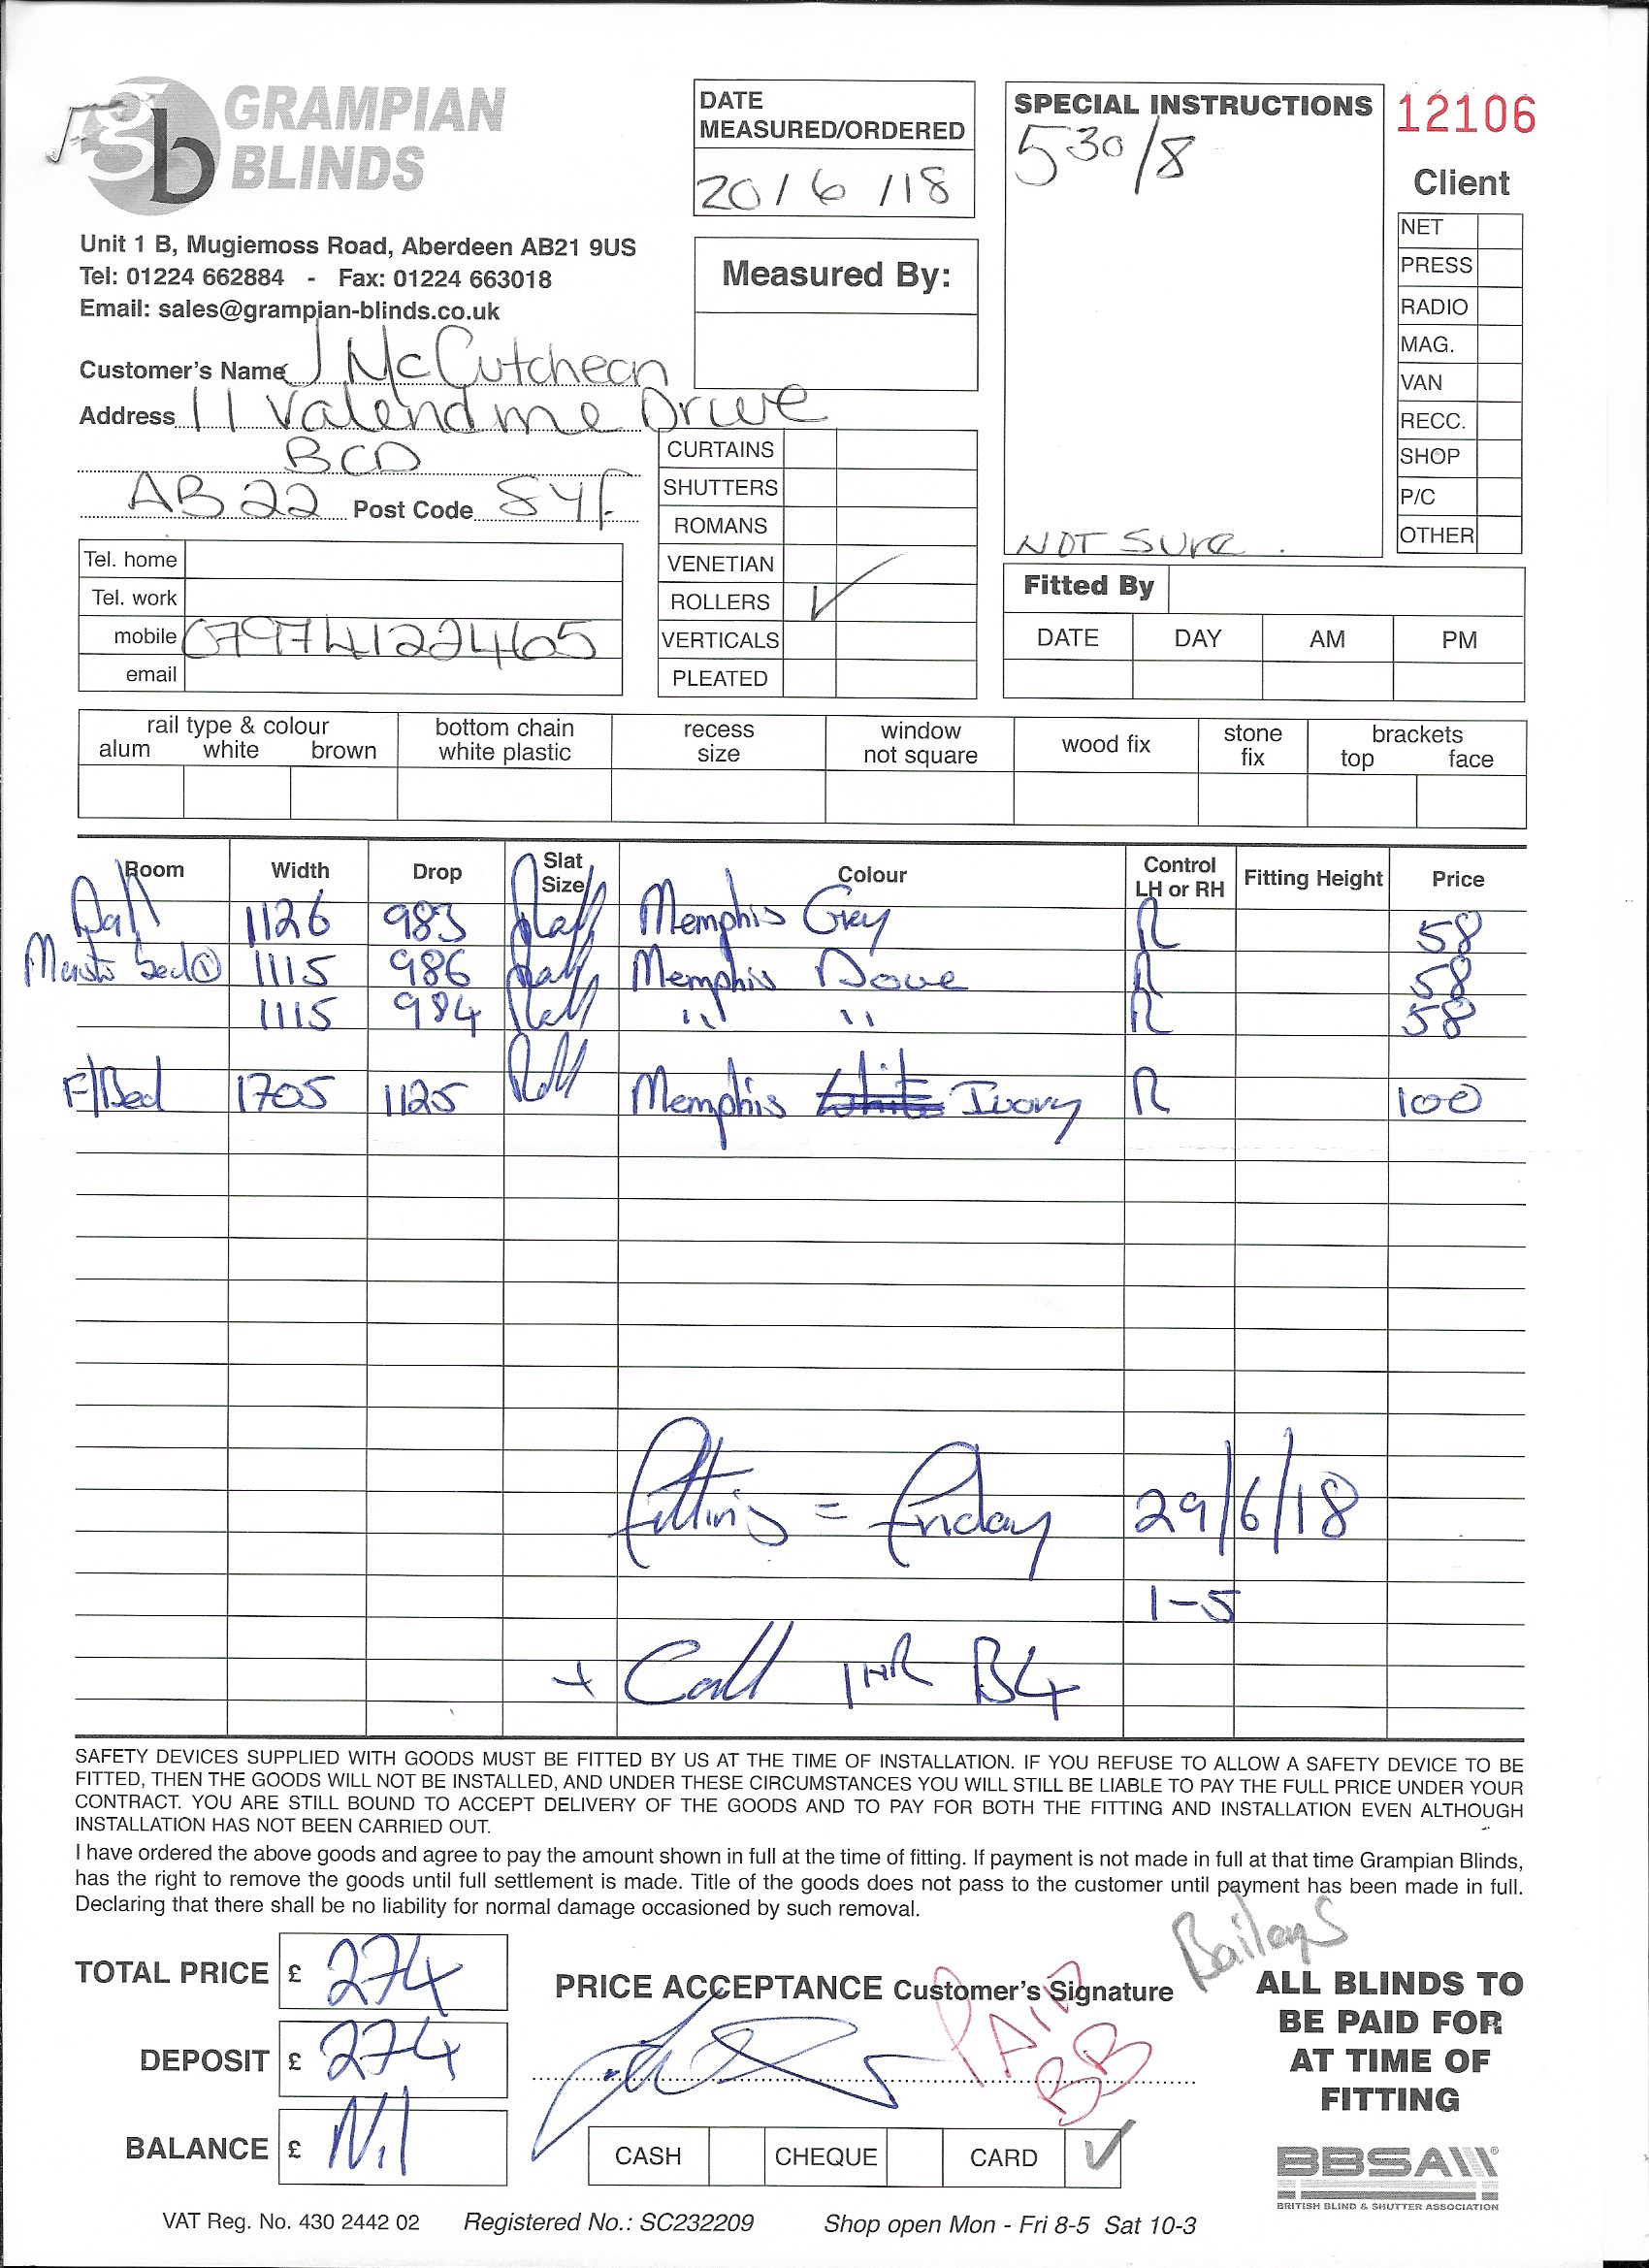 gb GRAMPIAN BLINDS
DATE MEASURED/ORDERED
20/6/18
SPECIAL INSTRUCTIONS
530/8
NOT SURE.
12106
Client
NET
PRESS
RADIO
MAG.
VAN
RECC.
SHOP
P/C
OTHER
Unit 1 B, Mugiemoss Road, Aberdeen AB21 9US
Tel: 01224 662884 - Fax: 01224 663018
Email: sales@grampian-blinds.co.uk
Measured By:
Customer's Name J McCutcheon
Address 11 Drive
BCD
AB22 Post Code 8YF
Tel. home
Tel. work
mobile 07974122465
email
CURTAINS
SHUTTERS
ROMANS
VENETIAN
ROLLERS ✓
VERTICALS
PLEATED
Fitted By
DATE DAY AM PM
rail type & colour
alum white brown
bottom chain
white plastic
recess
size
window
not square
wood fix
stone
fix
brackets
top face
Room Width Drop Slat Size Colour Control LH or RH Fitting Height Price
1126 983 Roll Memphis Grey R 58
Master bed ① 1115 986 Roll Memphis Dove R 58
1115 984 Roll " " R 58
F/Bed 1705 1125 Roll Memphis White Ivory R 100
Fitting = Friday 29/6/18
1-5
+ Call 1HR B4
SAFETY DEVICES SUPPLIED WITH GOODS MUST BE FITTED BY US AT THE TIME OF INSTALLATION. IF YOU REFUSE TO ALLOW A SAFETY DEVICE TO BE
FITTED, THEN THE GOODS WILL NOT BE INSTALLED, AND UNDER THESE CIRCUMSTANCES YOU WILL STILL BE LIABLE TO PAY THE FULL PRICE UNDER YOUR
CONTRACT. YOU ARE STILL BOUND TO ACCEPT DELIVERY OF THE GOODS AND TO PAY FOR BOTH THE FITTING AND INSTALLATION EVEN ALTHOUGH
INSTALLATION HAS NOT BEEN CARRIED OUT.
I have ordered the above goods and agree to pay the amount shown in full at the time of fitting. If payment is not made in full at that time Grampian Blinds,
has the right to remove the goods until full settlement is made. Title of the goods does not pass to the customer until payment has been made in full.
Declaring that there shall be no liability for normal damage occasioned by such removal.
Baileys
TOTAL PRICE £ 274
DEPOSIT £ 274
BALANCE £ Nil
PRICE ACCEPTANCE Customer's Signature
PAID
BB
CASH CHEQUE CARD ✓
ALL BLINDS TO
BE PAID FOR
AT TIME OF
FITTING
BBSA
BRITISH BLIND & SHUTTER ASSOCIATION
VAT Reg. No. 430 2442 02 Registered No.: SC232209 Shop open Mon - Fri 8-5 Sat 10-3